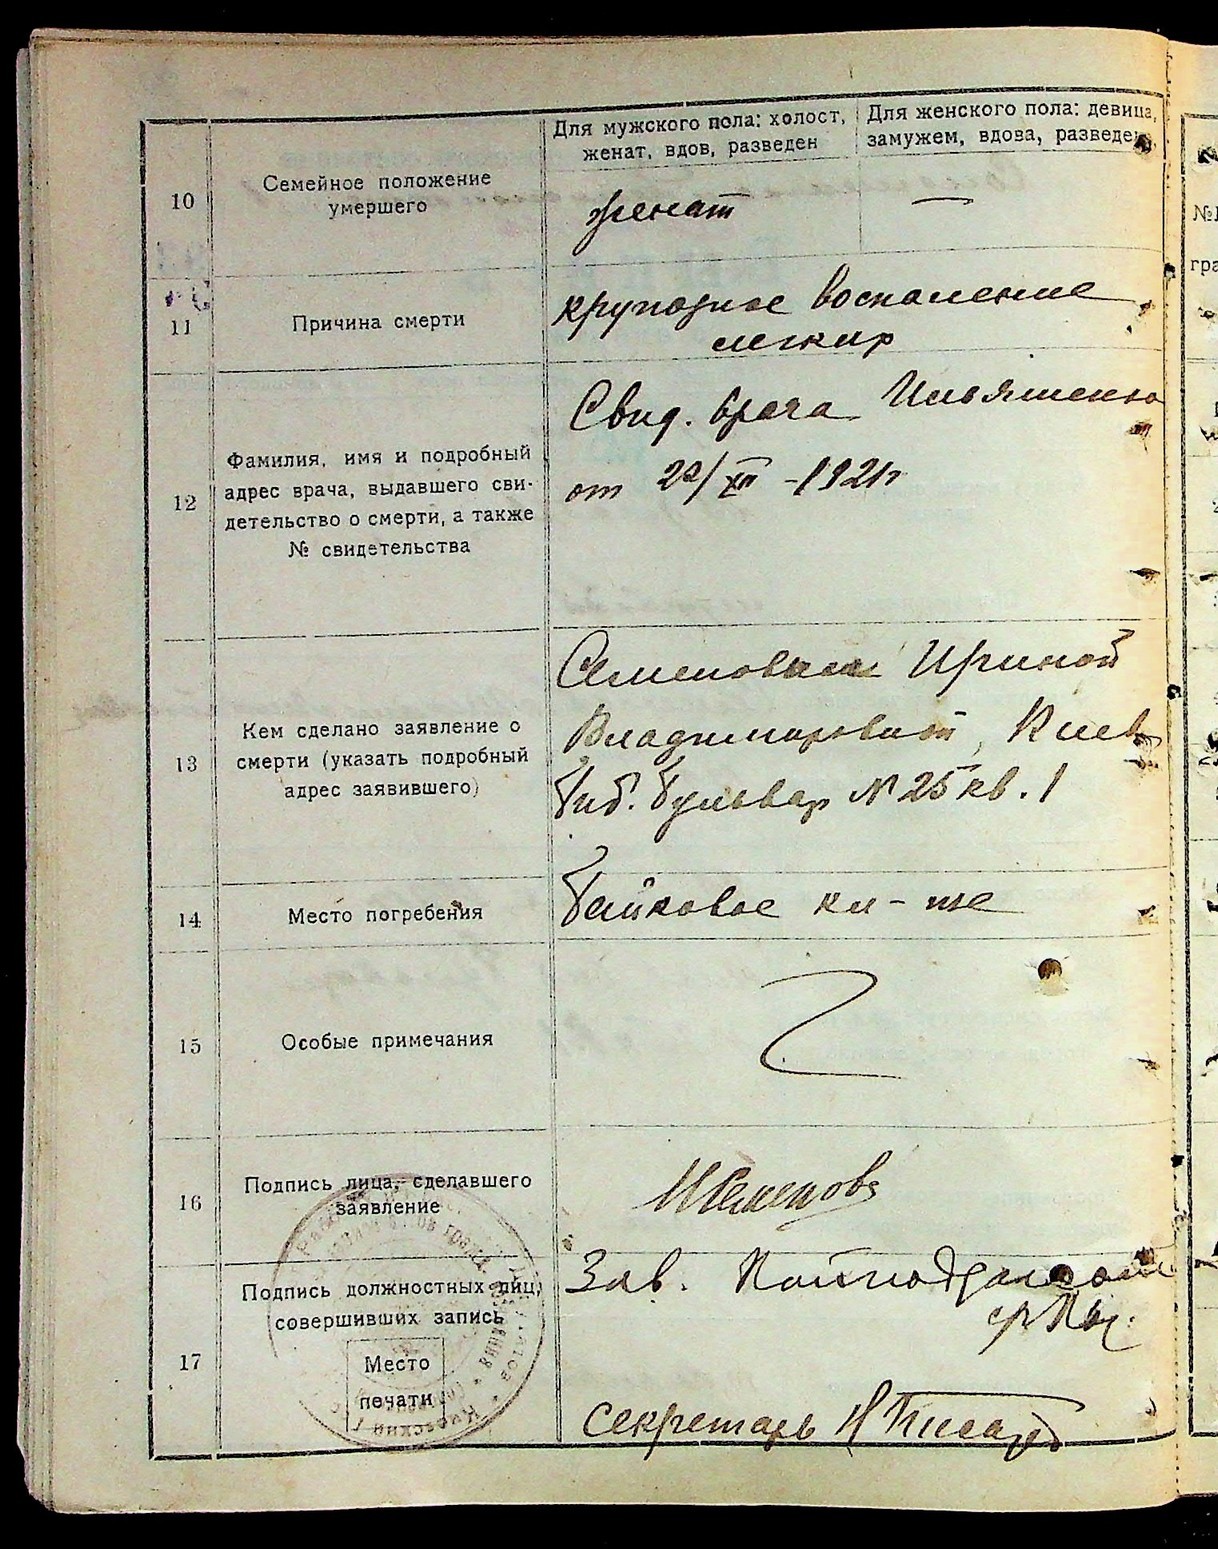 Для мужского пола: холост,
женат, вдов, разведен
Для женского пола: девица,
замужем, вдова, разведен
10
Семейное положение
умершего
женат
—
11
Причина смерти
крупозное воспаление
легких
12
Фамилия, имя и подробный
адрес врача, выдавшего сви-
детельство о смерти, а также
№ свидетельства
Свид. врача Ильяшенко
от 22/XII - 1921г
13
Кем сделано заявление о
смерти (указать подробный
адрес заявившего)
Семеновым Ириной
Владимировной, Киев
Биб. бульвар № 25 кв. 1
14
Место погребения
Байковое кл-ще
15
Особые примечания
16
Подпись лица, сделавшего
заявление
ИСеменова
17
Подпись должностных лиц,
совершивших запись
Место
печати
Зав. Подотделом
Секретарь